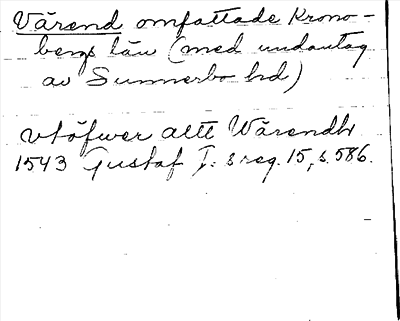 Värend omfattade Krono-
bergs län (med undantag
av Sunnerbo hd)
vtöfwer altt Wärendh
1543 Gustaf I:s reg. 15, s. 586.